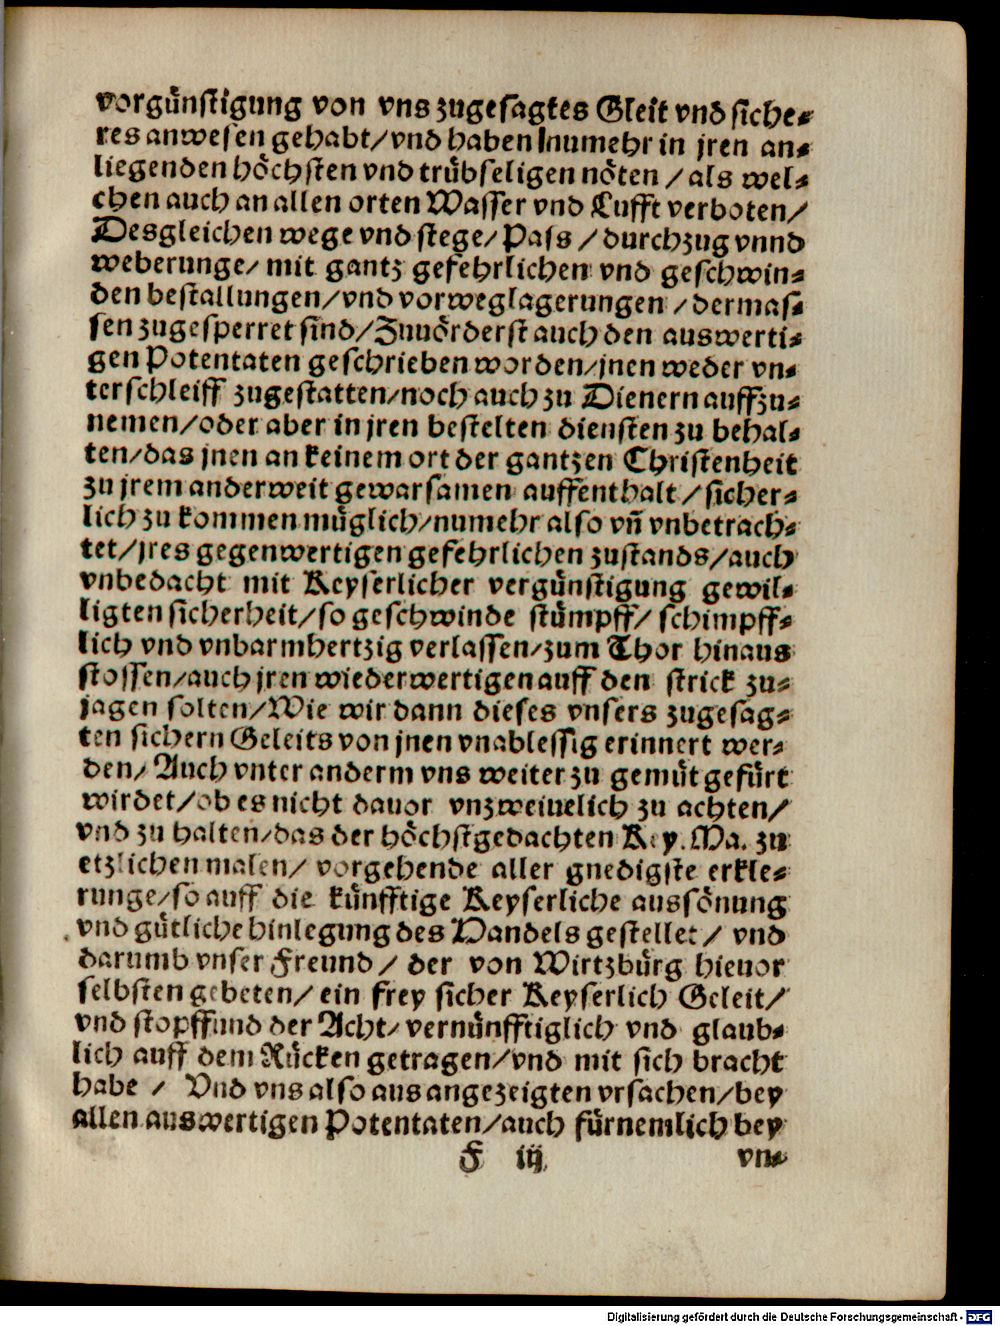 vorgünstigung von vns zugesagtes Gleit vnd siche⸗
res anwesen gehabt/vnd haben Inumehr in jren an⸗
liegenden höchsten vnd trübseligen nöten /als wel⸗
chen auch an allen orten Wasser vnd Lufft verboten/
Desgleichen wege vnd stege/Pass /durchzug vnnd
weberunge/ mit gantz gefehrlichen vnd geschwin⸗
den bestallungen/vnd vorweglagerungen /dermas⸗
sen zugesperret sind/Zuuörderst auch den auswerti⸗
gen Potentaten geschrieben worden/jnen weder vn⸗
terschleiff zugestatten/noch auch zu Dienern auffzu⸗
nemen/oder aber in jren bestelten diensten zu behal⸗
ten/das jnen an keinem ort der gantzen Christenheit
zu jrem anderweit gewarsamen auffenthalt /sicher⸗
lich zu kommen müglich/numehr also vñ vnbetrach⸗
tet/jres gegenwertigen gefehrlichen zustands/auch
vnbedacht mit Keyserlicher vergünstigung gewil⸗
ligten sicherheit/so geschwinde stümpff/ schimpff⸗
lich vnd vnbarmhertzig verlassen/zum Thor hinaus
stossen/auch jren wiederwertigen auff den strick zu⸗
jagen solten/Wie wir dann dieses vnsers zugesag⸗
ten sichern Geleits von jnen vnablessig erinnert wer⸗
den/ Auch vnter anderm vns weiter zu gemüt gefürt
wirdet/ob es nicht dauor vnzweiuelich zu achten/
vnd zu halten/das der höchstgedachten Key. Ma. zu
etzlichen malen/ vorgehende aller gnedigste erkle⸗
runge/so auff die künfftige Keyserliche aussönung
vnd gütliche hinlegung des Handels gestellet/ vnd
darumb vnser Freund/ der von Wirtzbürg hieuor
selbsten gebeten/ ein frey sicher Keyserlich Geleit/
vnd stopffund der Acht/ vernünfftiglich vnd glaub⸗
lich auff dem Rücken getragen/vnd mit sich bracht
habe / Vnd vns also aus angezeigten vrsachen/bey
allen auswertigen Potentaten/auch fürnemlich bey
F iij vn⸗
Digitalisierung gefördert durch die Deutsche Forschungsgemeinschaft - DFG